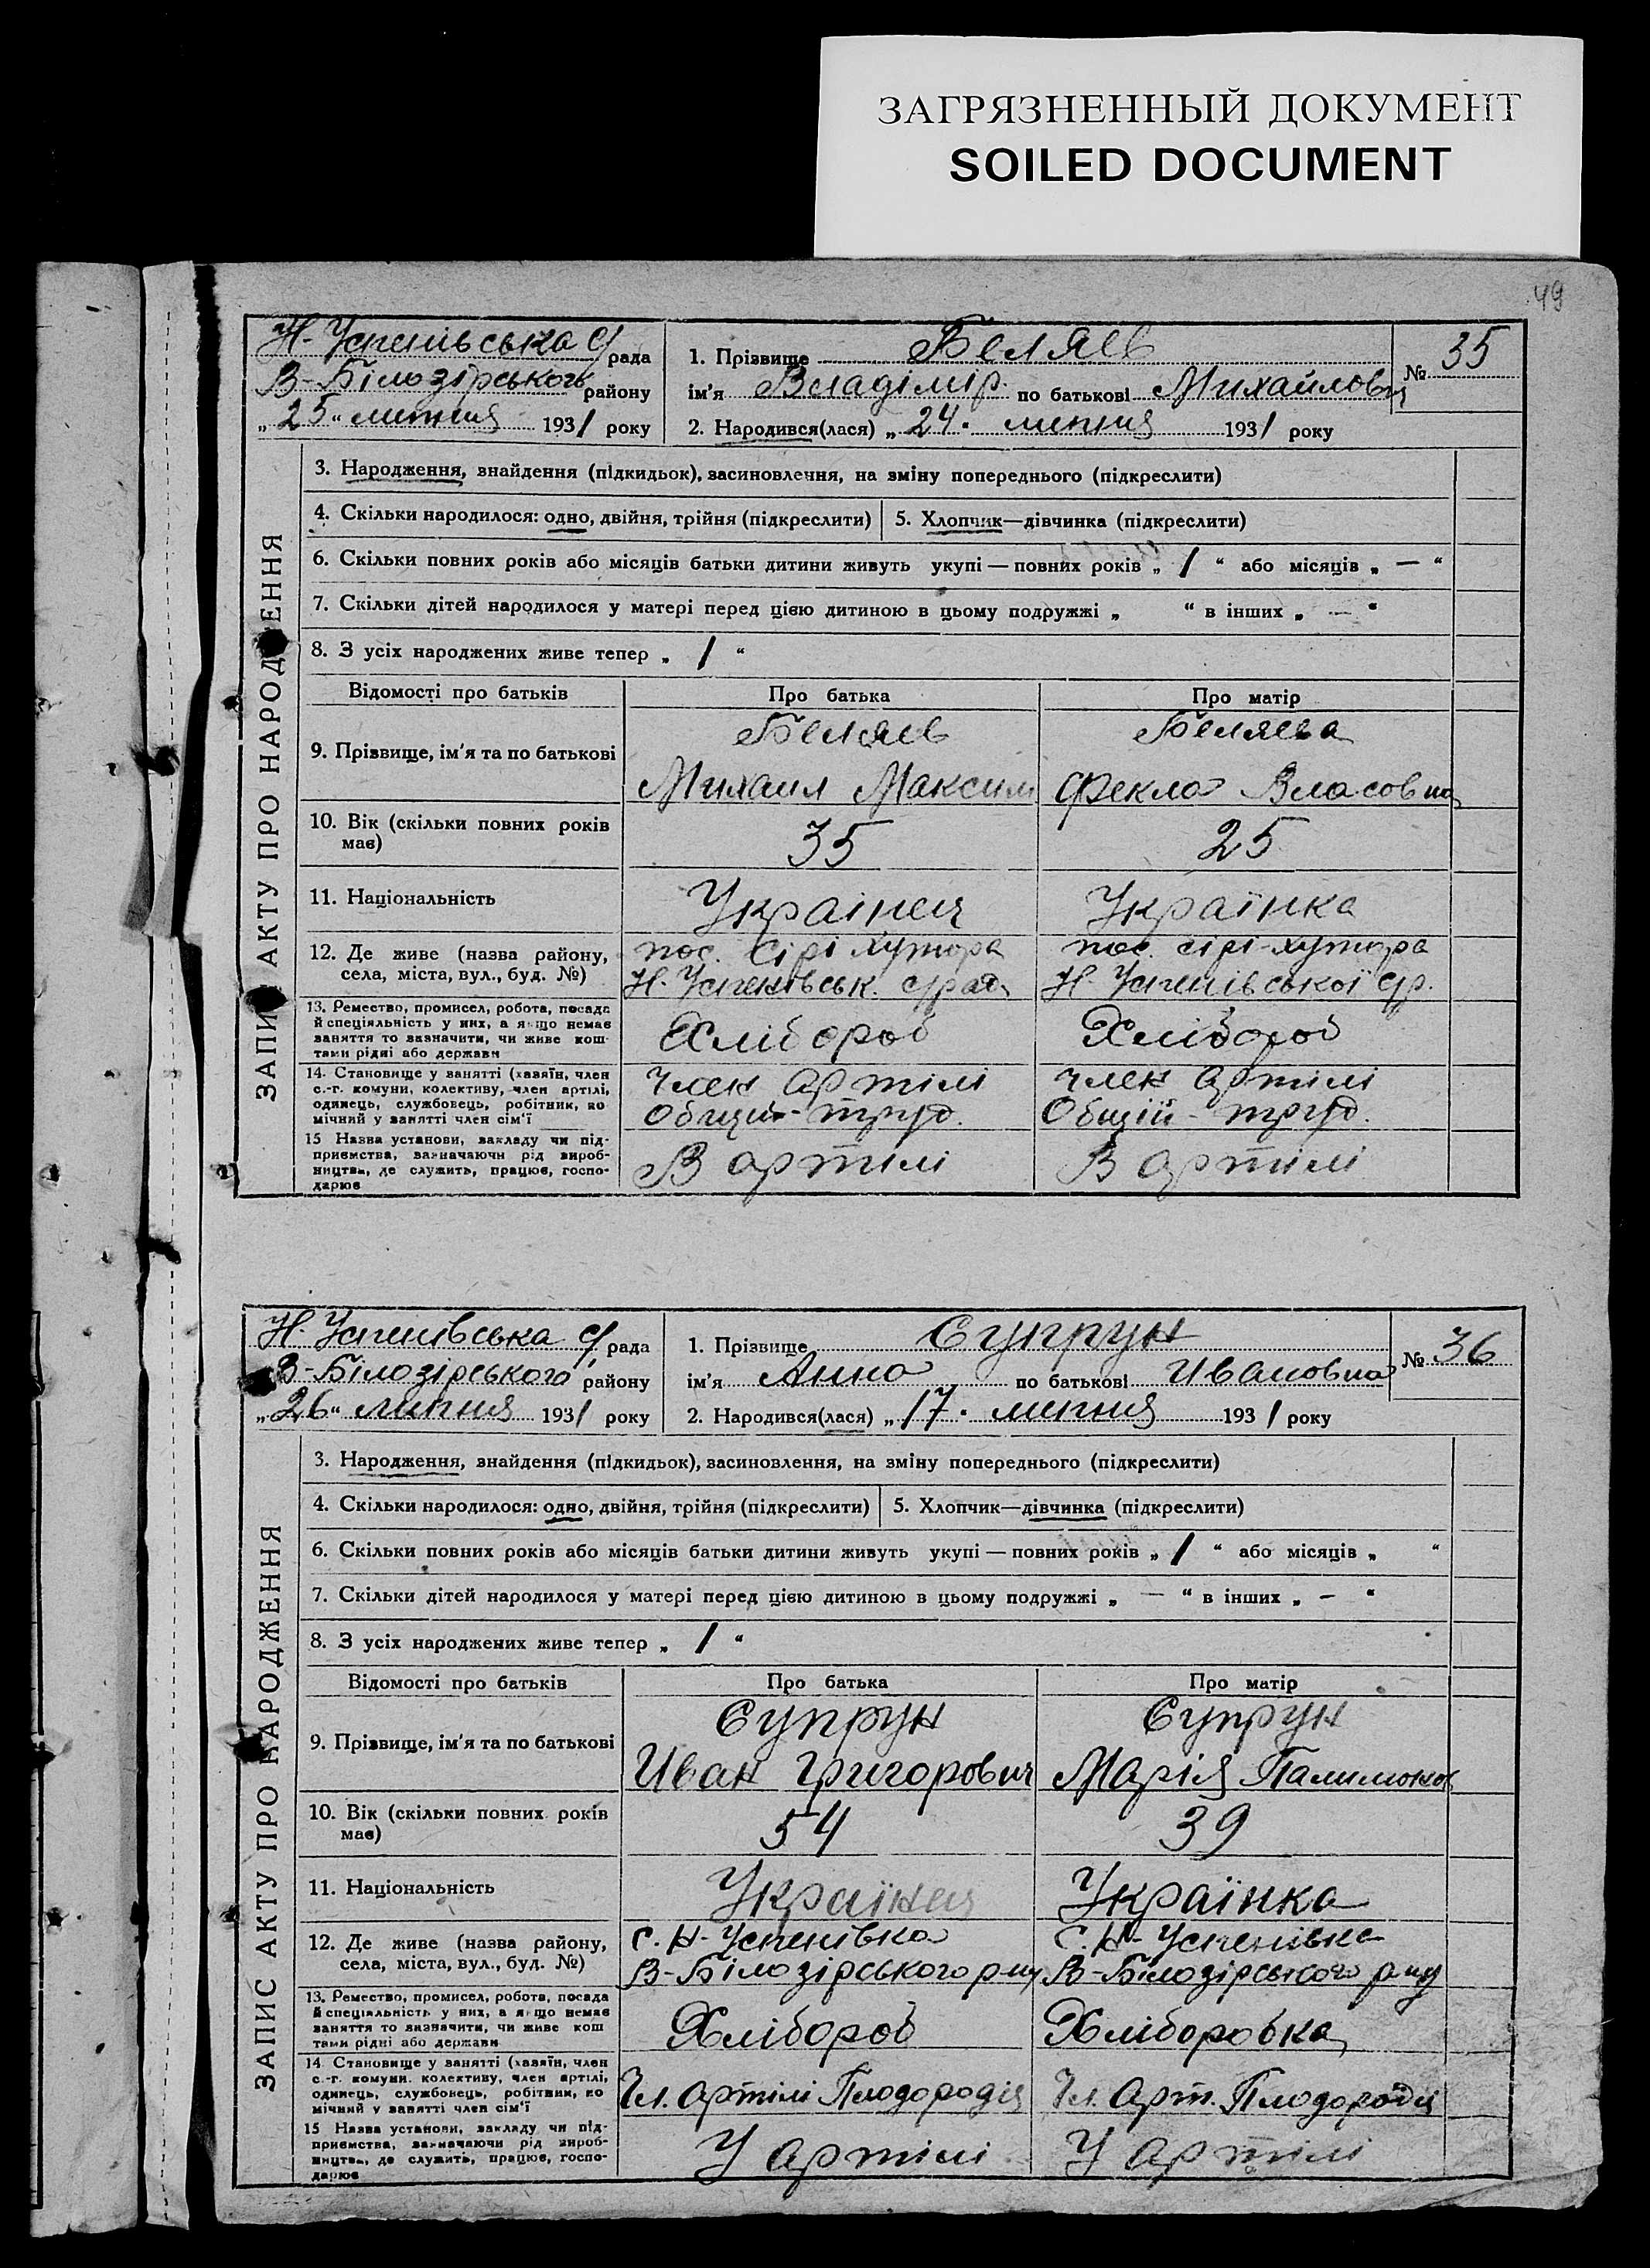 ЗАГРЯЗНЕННЫЙ ДОКУМЕНТ
SOILED DOCUMENT
49
ЗАПИС АКТУ ПРО НАРОДЖЕННЯ
Н. Успенівська с/рада
В-Білозірського району
„25“ липня 1931 року
1. Прізвище Беляев
№ 35
ім'я Владімір по батькові Михайлович
2. Народився(лася) „24. липня 1931 року
3. Народження, знайдення (підкидьок), засиновлення, на зміну попереднього (підкреслити)
4. Скільки народилося: одно, двійня, трійня (підкреслити) 5. Хлопчик—дівчинка (підкреслити)
6. Скільки повних років або місяців батьки дитини живуть укупі — повних років „ 1 “ або місяців „ — “
7. Скільки дітей народилося у матері перед цією дитиною в цьому подружжі „ “ в інших „ — “
8. З усіх народжених живе тепер „ 1 “
Відомості про батьків Про батька Про матір
9. Прізвище, ім'я та по батькові
Беляев Беляева
Михаил Максим Фекла Власовна
10. Вік (скільки повних років має) 35 25
11. Національність Українец Українка
12. Де живе (назва району, села, міста, вул., буд. №)
пос. Сірі хутора пос. сірі-хутора
Н. Успенівськ. с/рад Н. Успенівської с/р.
13. Ремество, промисел, робота, посада
й спеціяльність у них, а якщо немає
заняття то зазначити, чи живе кош-
тами рідні або держави
Хлібороб Хлібороб
14. Становище у занятті (хазяїн, член
с.-г. комуни, колективу, член артілі,
одинець, службовець, робітник, по
мічний у занятті член сім'ї
член артілі член артілі
Общій-труд. Общій-труд.
15 Назва установи, закладу чи під-
приємства, зазначаючи рід вироб-
ництва, де служить, працює, госпо-
дарює
В артілі В артілі
ЗАПИС АКТУ ПРО НАРОДЖЕННЯ
Н. Успенівська с/рада
В-Білозірського району
„26“ липня 1931 року
1. Прізвище Супрун
№ 36
ім'я Анна по батькові Ивановна
2. Народився(лася) „17. липня 1931 року
3. Народження, знайдення (підкидьок), засиновлення, на зміну попереднього (підкреслити)
4. Скільки народилося: одно, двійня, трійня (підкреслити) 5. Хлопчик—дівчинка (підкреслити)
6. Скільки повних років або місяців батьки дитини живуть укупі — повних років „ 1 “ або місяців „ “
7. Скільки дітей народилося у матері перед цією дитиною в цьому подружжі „ — “ в інших „ — “
8. З усіх народжених живе тепер „ 1 “
Відомості про батьків Про батька Про матір
9. Прізвище, ім'я та по батькові
Супрун Супрун
Иван Григорович Марія
10. Вік (скільки повних років має) 54 39
11. Національність Українец Українка
12. Де живе (назва району, села, міста, вул., буд. №)
с. Н-Успенівка с. Н-Успенівка
В-Білозірського р-ну В-Білозірського р-ну
13. Ремество, промисел, робота, посада
й спеціяльність у них, а якщо немає
заняття то зазначити, чи живе кош
тами рідні або держави
Хлібороб Хлібробка
14. Становище у занятті (хазяїн, член
с.-г. комуни, колективу, член артілі,
одинець, службовець, робітник, по
мічний у занятті член сім'ї
Чл. артілі Плодородія Чл. Арт. Плодородія
15 Назва установи, закладу чи під-
приємства, зазначаючи рід вироб-
ництва, де служить, працює, госпо-
дарює
У артілі У артілі